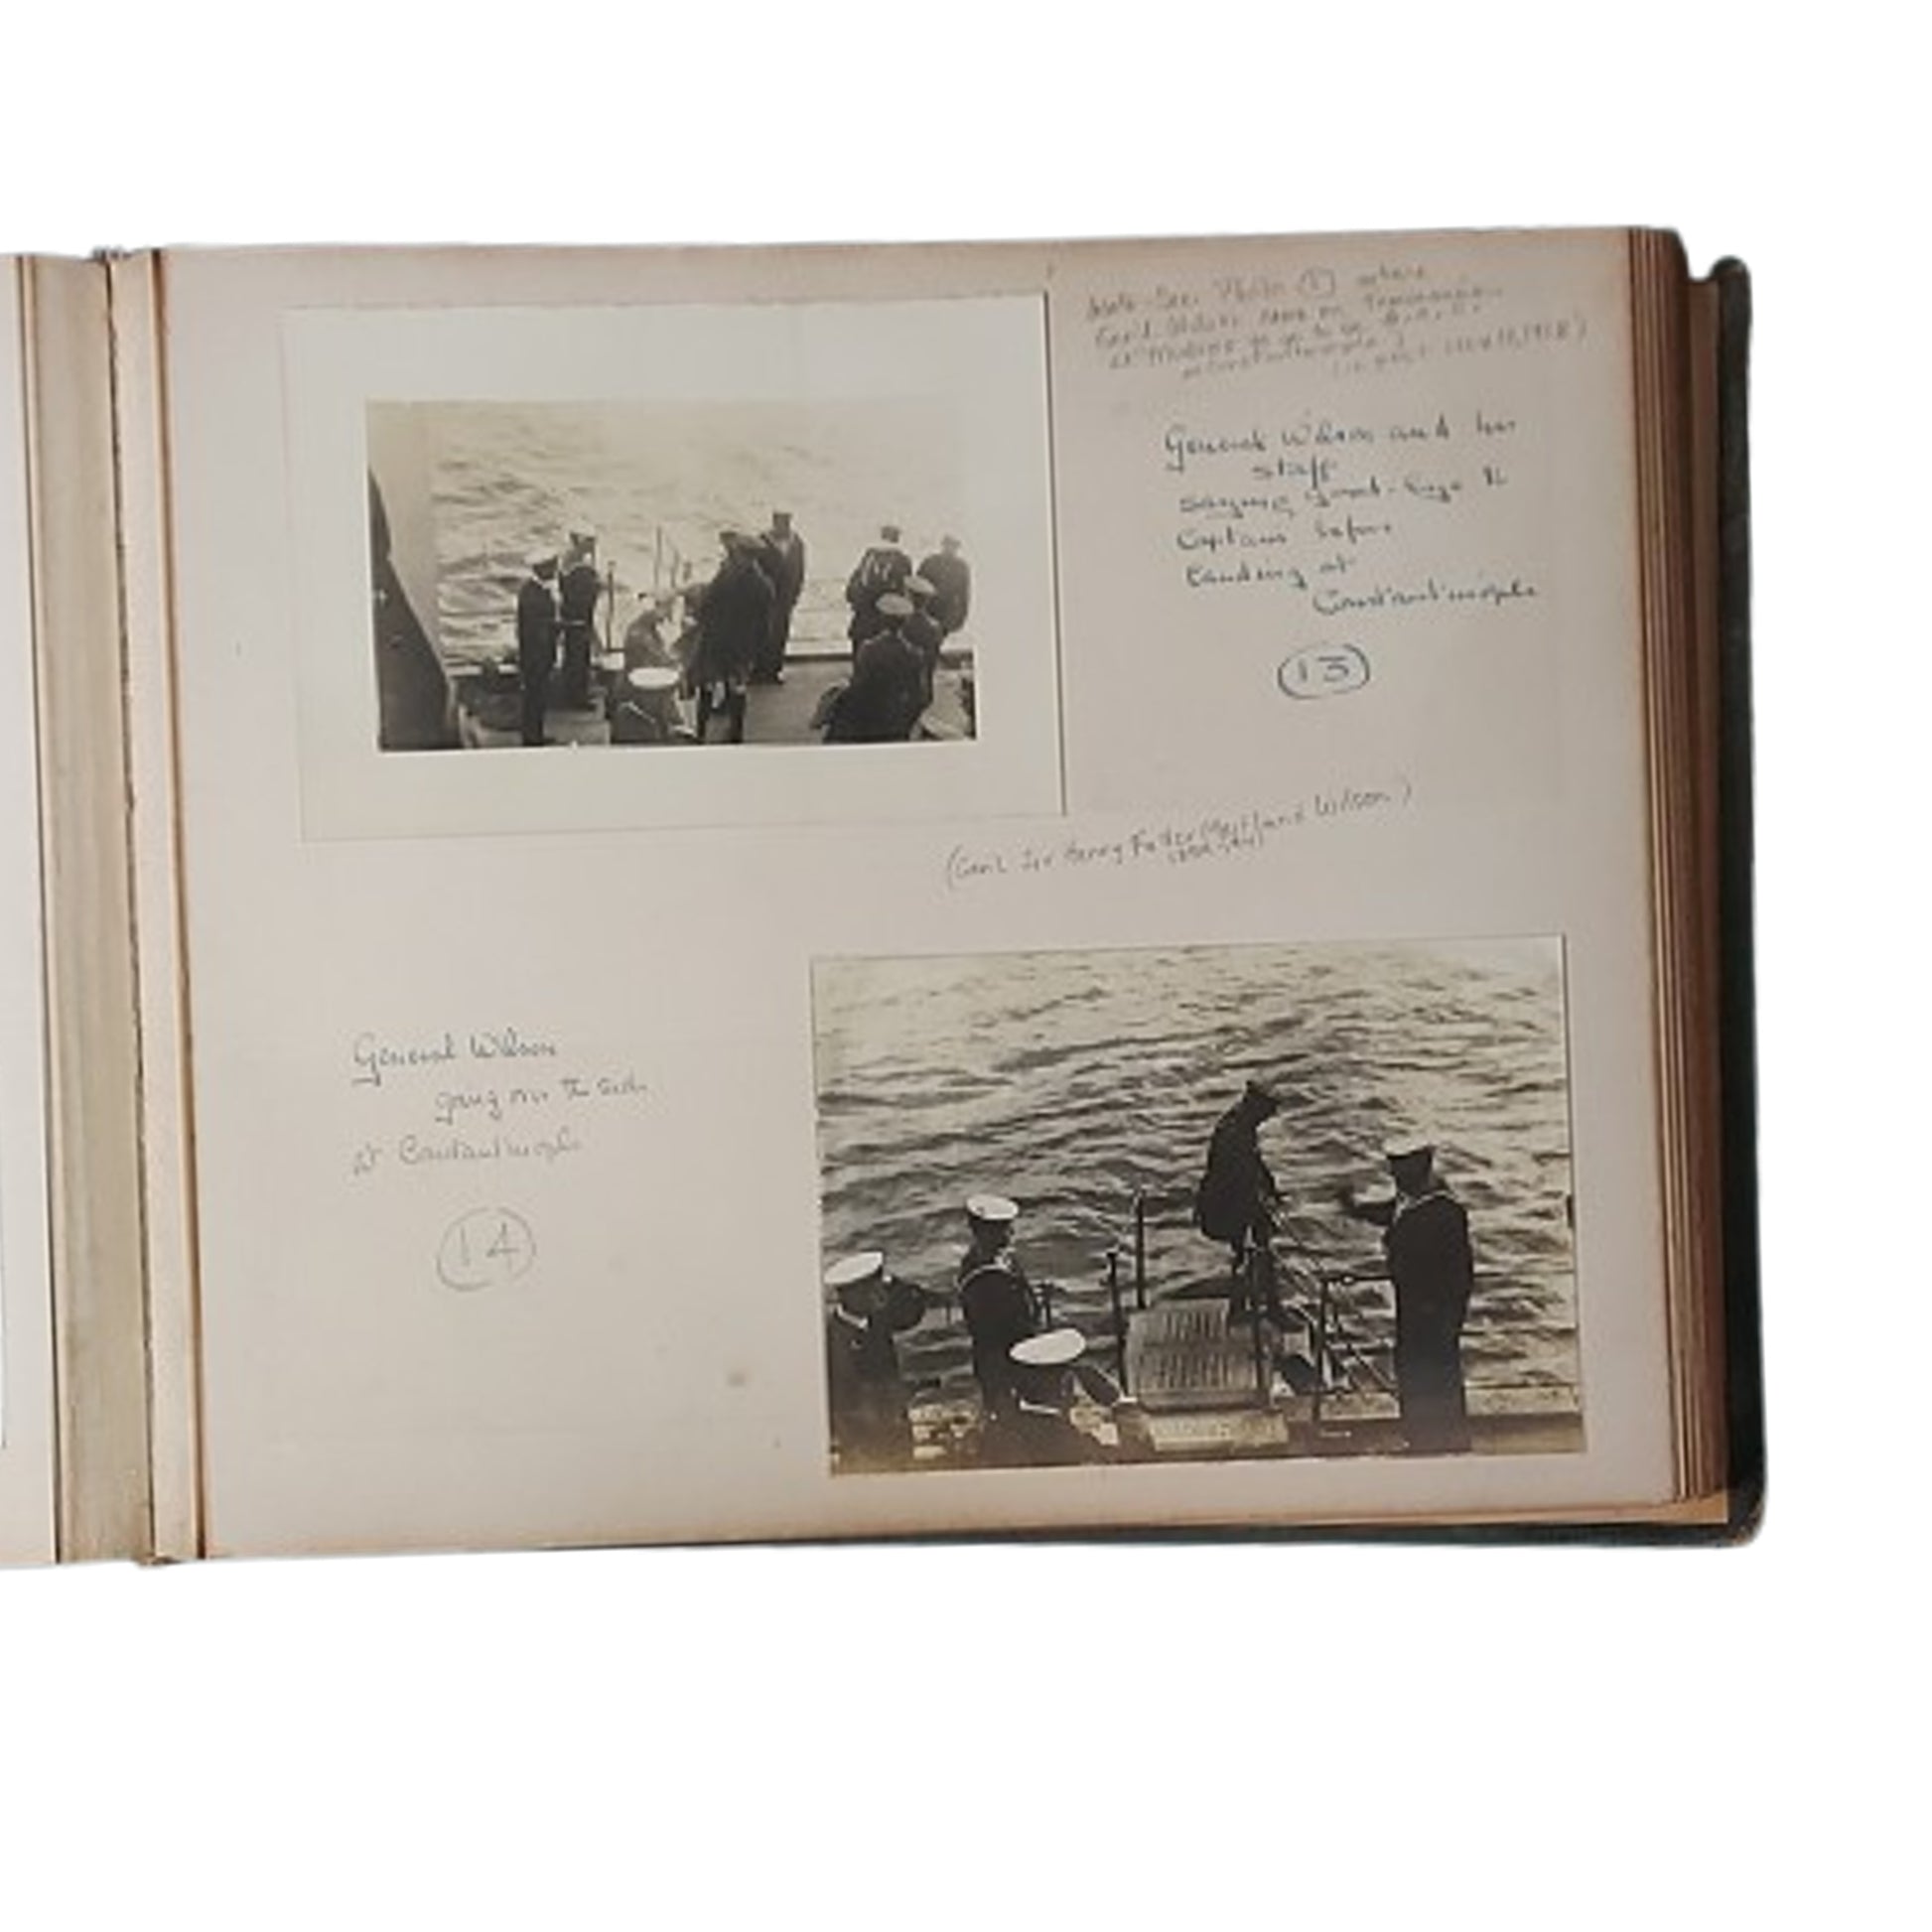 Note - See Photo where
Gen'l Wilson
at Mudros
Constantinople)
General Wilson and his
staff
saying good-bye to
Captain before
Landing at
Constantinople
13
(Gen'l Sir Henry Fuller Maitland Wilson)
General Wilson
going over the side
at Constantinople
14